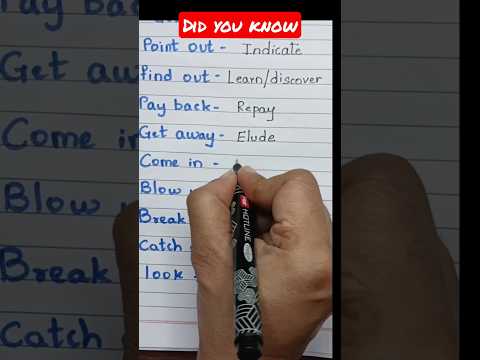 Did you know
Point out - Indicate
find out - Learn/discover
Pay back - Repay
Get away - Elude
Come in -
Blow
Break
Catch
look
Pay back
Get away
Come in
Break
Catch
HOTLINE